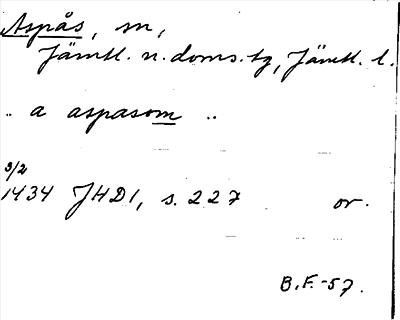 Aspås, sn,
Jämtl. n. doms. tg, Jämtl. l.
.. a aspasom ..
3/2
1434 JHD1, s. 227 or.
B.F.-57.